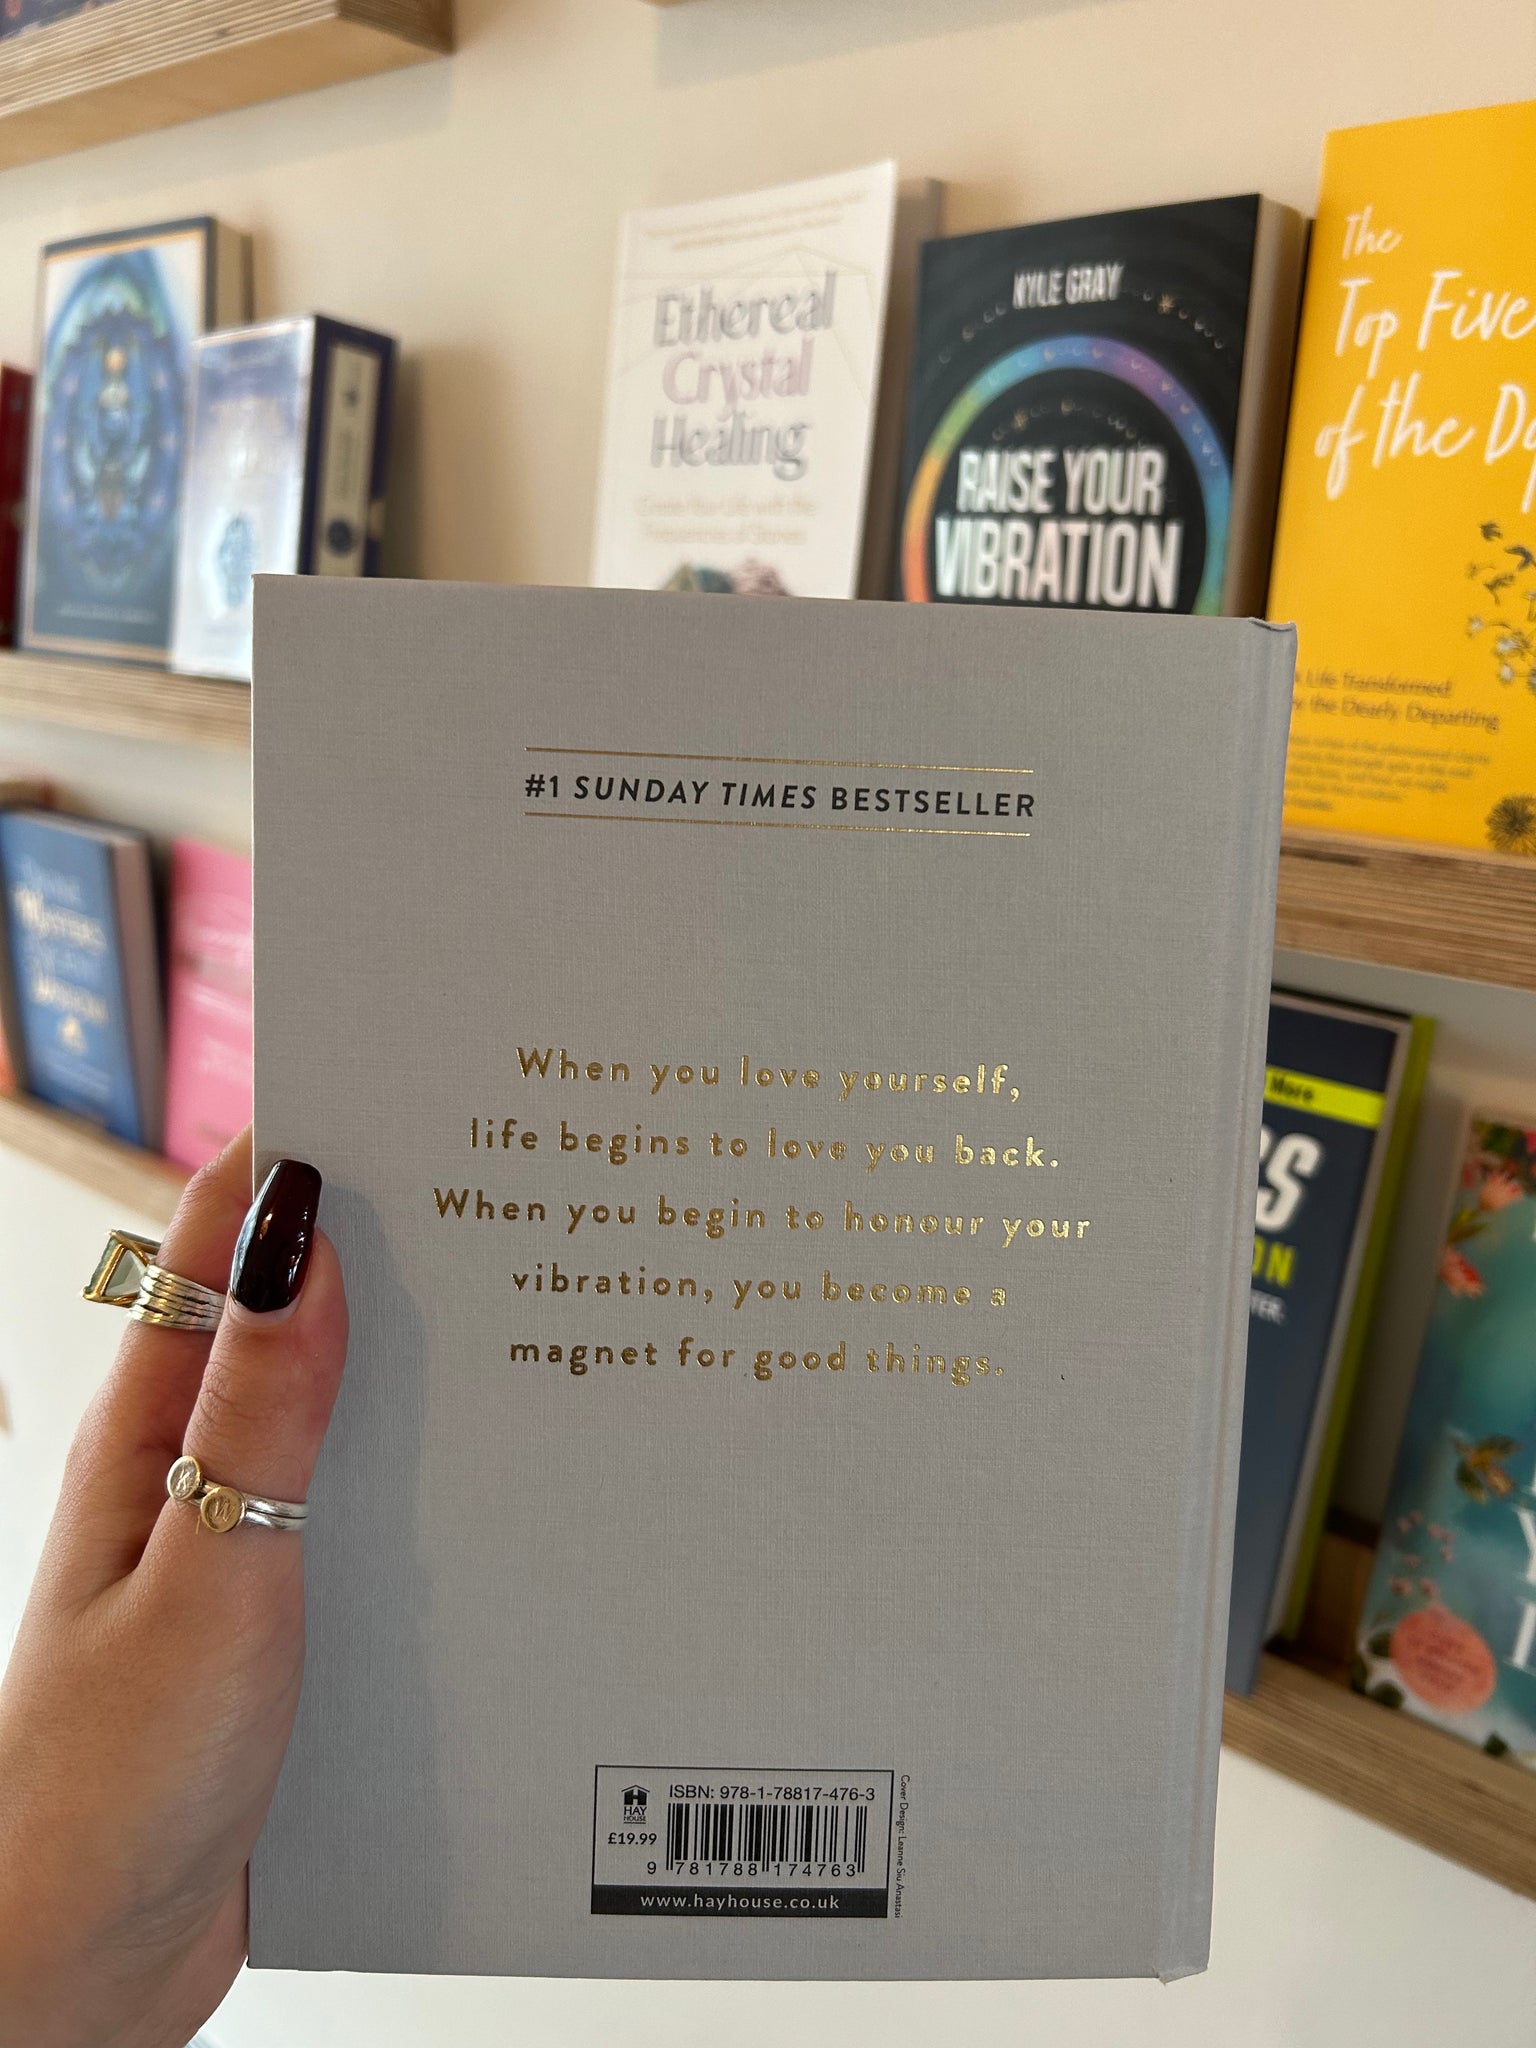 Ethereal
Crystal
Healing
KYLE GRAY
RAISE YOUR
VIBRATION
The
Top Five
of the
A Life Transformed
the Dearly Departing
#1 SUNDAY TIMES BESTSELLER
When you love yourself,
life begins to love you back.
When you begin to honour your
vibration, you become a
magnet for good things.
More
K
W
HAY
HOUSE
£19.99
ISBN: 978-1-78817-476-3
9 781788 174763
www.hayhouse.co.uk
Cover Design: Leanne Siu Anastasi